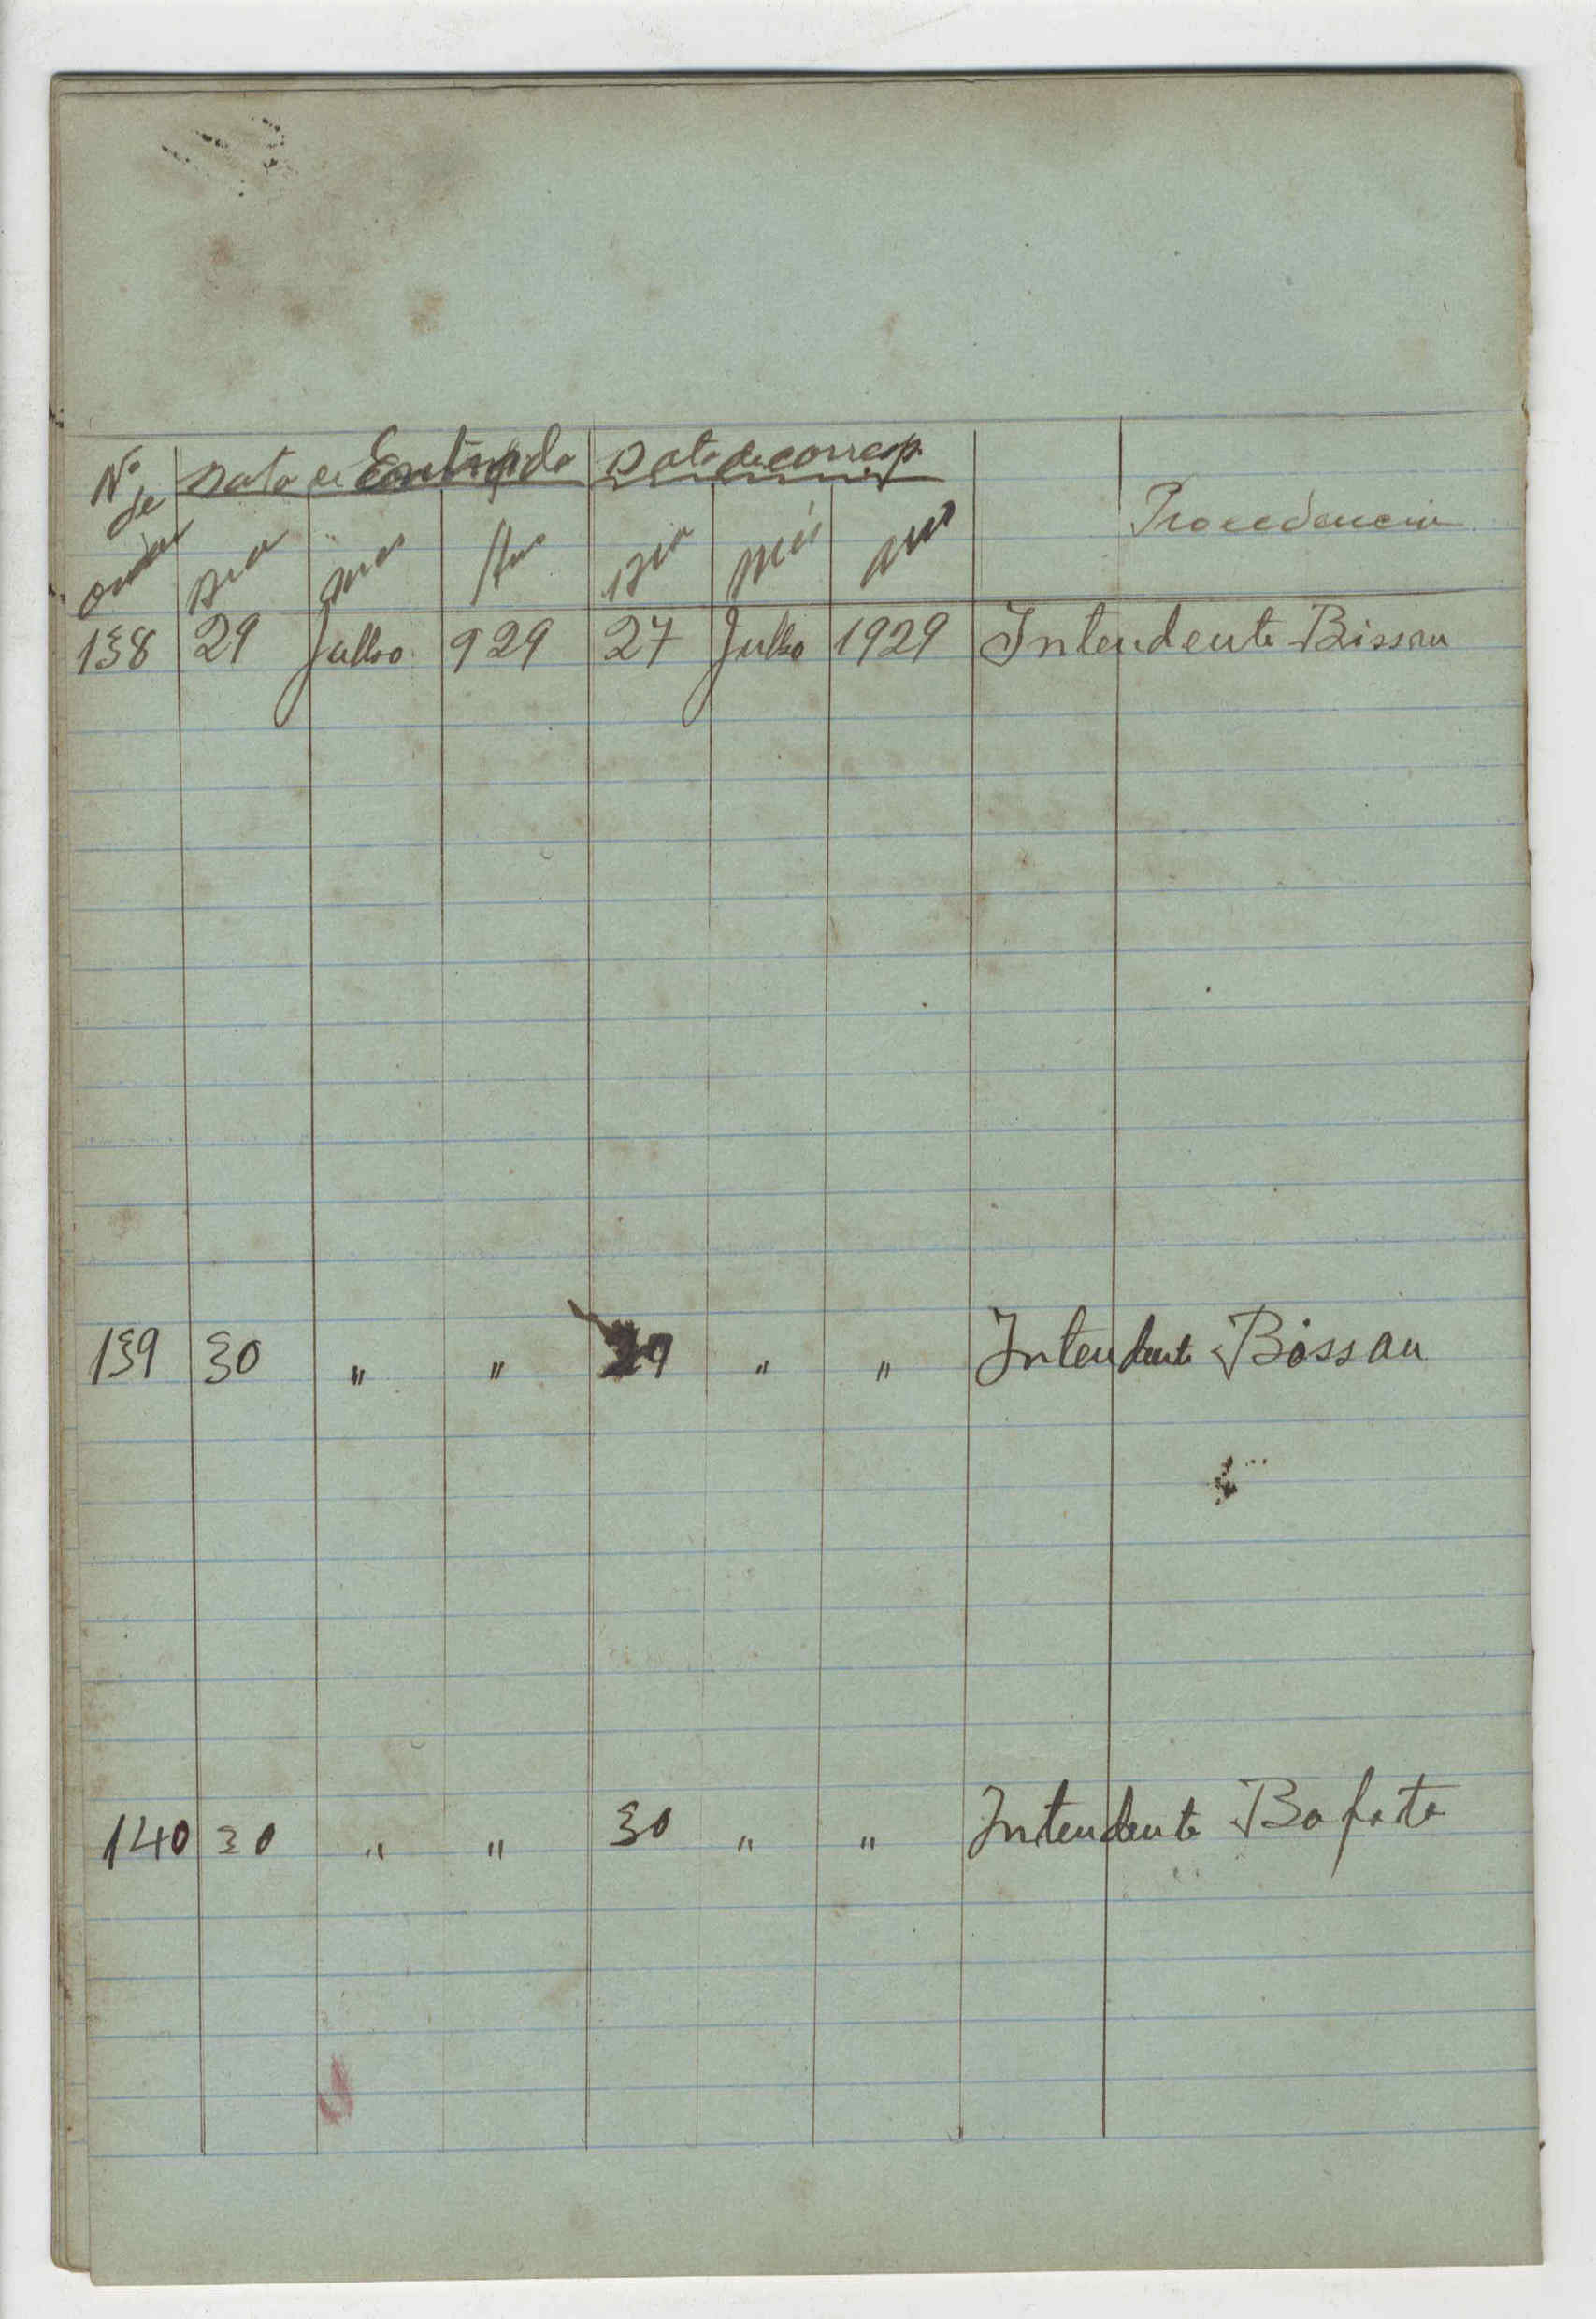 Nº de ordem
Data de Entrada
Data de corresp.
Procedencia
Dia Mês Ano Dia Mês Ano
138 29 Julho 929 27 Julho 1929 Intendente Bissau
139 30 " " 29 " " Intendente Bissau
140 30 " " 30 " " Intendente Bafata